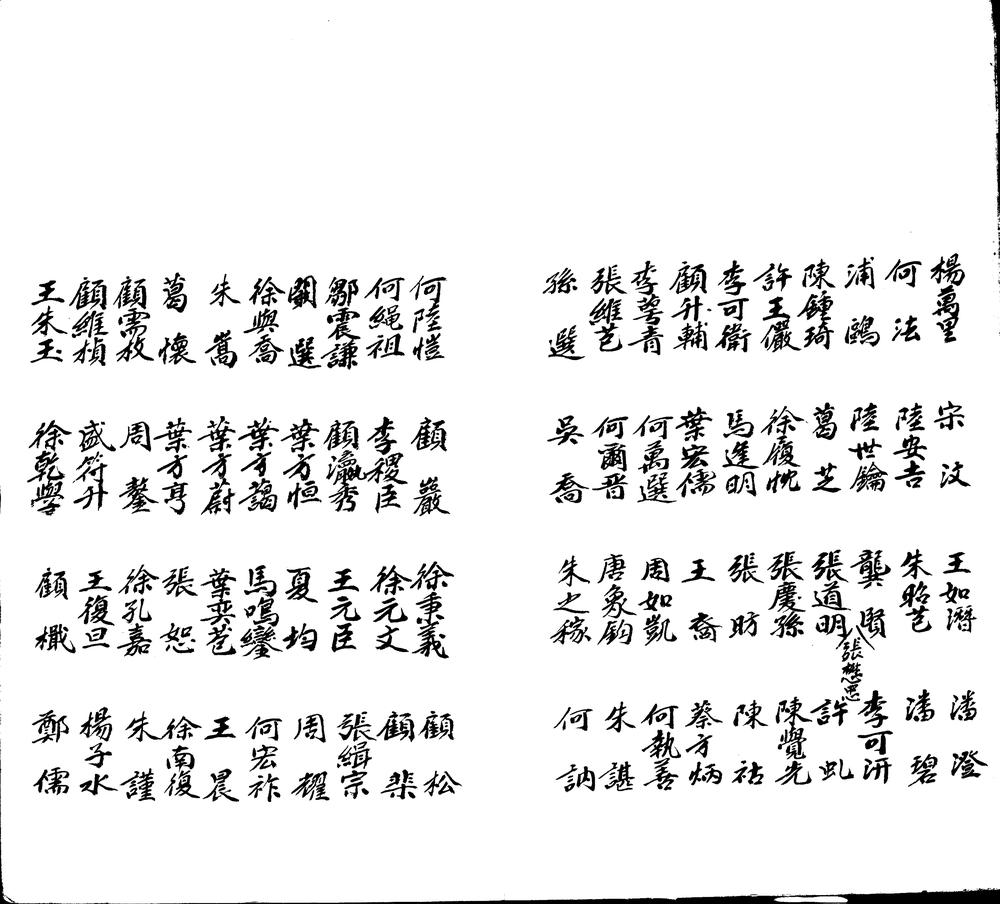 楊萬里 宋汶 王如潛 潘澄
何法 陸安吉 朱昭芑 潘碧
浦鷗 陸世鑰 龔賢 張懋 李可汧
陳鍾琦 葛芝 張道明 許虬
許王儼 徐履忱 張慶孫 陳覺先
李可衛 馬進明 張昉 陳祜
顧升輔 葉宏儒 王裔 蔡方炳
李萼青 何萬選 周如凱 何執善
張維芑 何爾晋 唐象鈞 朱諶
孫選 吳喬 朱之稼 何訥
何陸愷 顧巖 徐秉義 顧松
何繩祖 李稷臣 徐元文 顧棐
鄒震謙 顧瀛秀 王元臣 張緝宗
關選 葉方恒 夏均 周耀
徐與喬 葉方藹 馬鳴鑾 何宏祚
朱嵩 葉方蔚 葉奕苞 王晨
葛懷 葉方亨 張恕 徐南復
顧需枚 周鏊 徐孔嘉 朱謹
顧維楨 盛符升 王復旦 楊子水
王朱玉 徐乾學 顧檝 鄭儒